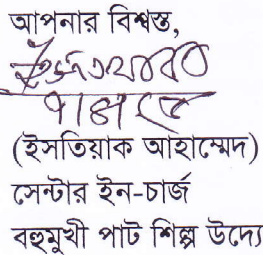 আপনার বিশ্বস্ত,
(ইসতিয়াক আহাম্মেদ)
সেন্টার ইন-চার্জ
বহুমুখী পাট শিল্প উদ্যো